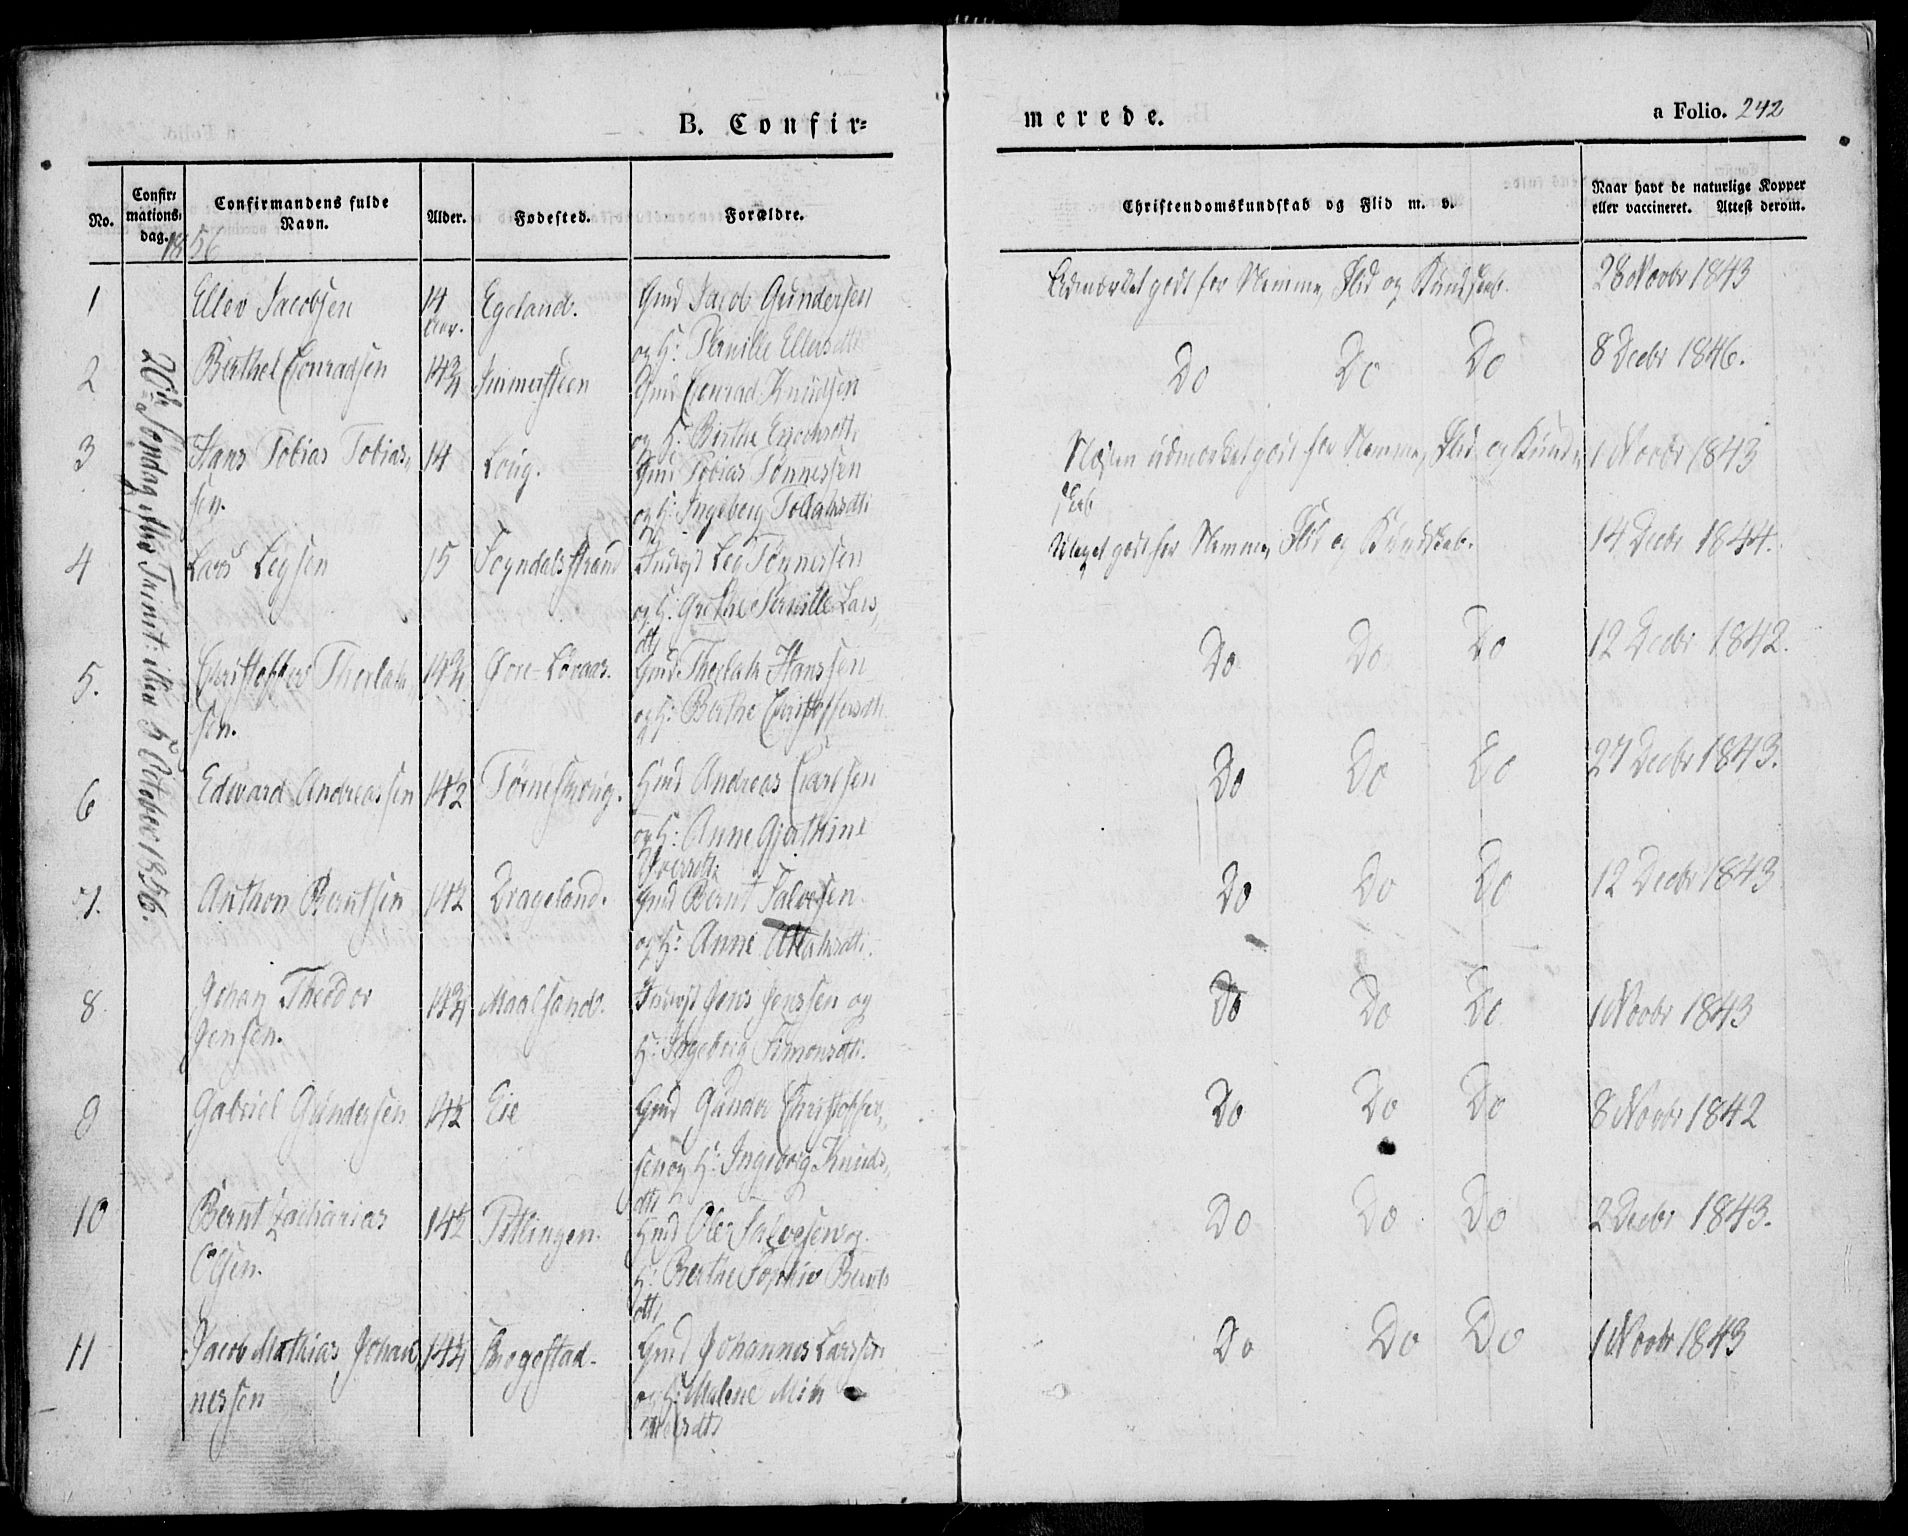 B. Confir=
merede.
a Folio. 242
No.
Confir=
mations=
dag.
Confirmandens fulde
Navn.
Alder.
Fødested.
Forældre.
Christendomskundskab og Flid m. v.
Naar havt de naturlige Kopper
eller vaccineret. Attest derom.
1856
20de Søndag efter Trinit: den 5 October 1856.
1
Ellev Jacobsen
14
Aar.
Egeland.
Gmd Jacob Gundersen
og H: Pernille Ellevsdtt:
Udmærket godt for Nemme, Flid og Kundskab.
28 Novbr 1843
2
Berthel Conradsen
14¾
Immersteen
Gmd Conrad Knudsen
og H: Birthe
Do Do Do
8 Decbr 1846.
3
Hans Tobias Tobias,
sen.
14
Long.
Gmd Tobias Tønnessen
og H: Ingeborg Tollaksdtt:
Næsten udmærket godt for Nemme, Flid og Kund,
skab
1 Novbr 1843
4
Lars Legsen
15
Sogndalsstrand
Indvst Leg Tønnessen
og H: Grethe Pernille Lars,
dtt:
Meget godt for Nemme, Flid og Kundskab.
14 Decbr 1844.
5.
Christoffer Thorlak,
sen.
14¾
Øvre-Løvaas.
Gmd Thorlak Hanssen
og H: Berthe Christoffersdtt:
Do Do Do
12 Decbr 1842.
6
Edward Andreassen
14½
Hmd Andreas Carlsen
og H: Anne Gjerthine
Do Do Do
27 Decbr 1843.
7.
Anthon Berntsen
14½
Drageland.
Gmd Bernt Salvesen
og H: Anne Atlaksdtt:
Do Do Do
12 Decbr 1843
8
Johan Theodor
Jensen.
14¾
Maalsand.
Indvst Jens Jenssen og
H: Ingeborg Simonsdtt:
Do Do Do
1 Novbr 1843
9
Gabriel Gundersen
14½
Eie
Gmd Gunder Christoffer,
sen og H: Ingeborg Knuds,
dtt:
Do Do Do
8 Novbr 1842
10
Bernt Zacharias
Olsen.
14½
Titlingen.
Hmd Ole Salvesen og
H: Berthe Sophie Bernts
dtt:
Do Do Do
2 Decbr 1843.
11
Jacob Mathias Johan,
nessen
14¾
Brogestad
Gmd Johannes Larssen
og H: Malene
Do Do Do
1 Novbr 1843